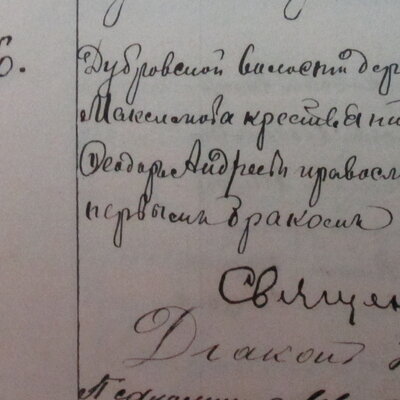 6.
Дубровской волости дер
Максимова крестьянин
Ѳеодоръ Андреевъ правосл
первымъ бракомъ
Священ
Диаконъ